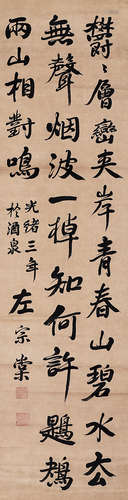 欝〻層巒夾岸青春山碧水厺
無聲烟波一棹知何許鶗鴂
兩山相對鳴
光緒三年
於酒泉
左宗棠